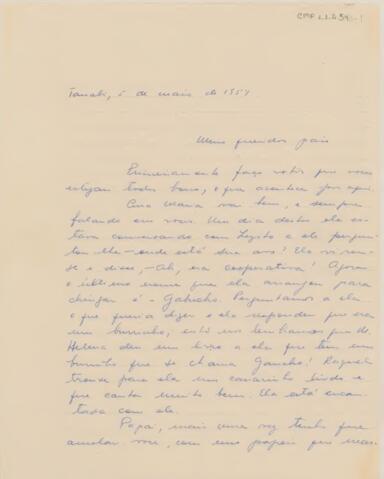 CMF 1.1.4.59
Tanabi, 5 de maio de 1954
Meus queridos pais
Primeiramente faço votos que vocês
estejam todos bons, o que acontece por aqui.
Ana Maria vai bem, e sempre
falando em vocês. Um dia destes ela es-
tava conversando com Zezito e ele pergun-
tou-lhe - onde está seu avô? Ela virou-
se e disse, - Ah, na cooperativa! Agora
o último nome que ela arranjou para
chingar é - Gaúcho. Perguntamos a ela
o que queria dizer e ela respondeu que era
um burrinho; então nos lembramos que D.
Helena deu um livro a ela que tem um
burrinho que se chama Gaúcho! Raquel
trouxe para ela um canarinho lindo e
que canta muito bem. Ela está encan-
tada com ele.
Papai, mais uma vez tenho que
amolar você, com uns papeis que